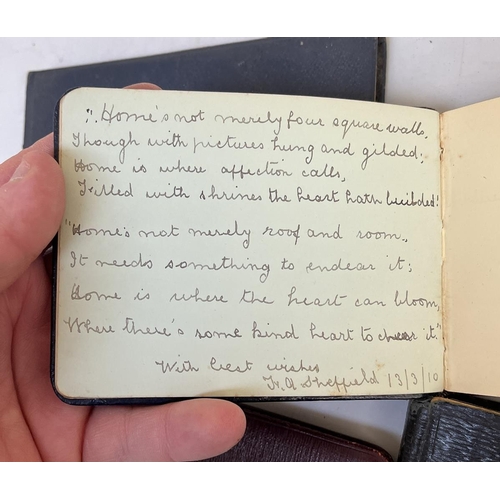 "Home's not merely four square walls,
Though with pictures hung and gilded;
Home is where affection calls,
Filled with shrines the heart hath builded!
"Home's not merely roof and room,
It needs something to endear it;
Home is where the heart can bloom,
Where there's some kind heart to cheer it."
With best wishes
F. A Sheffield 13/3/10